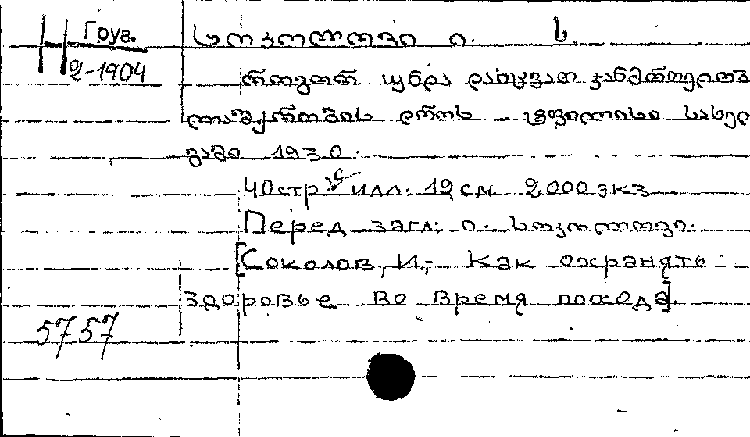 Груз.
2-1904
სოკოლოვი ი. ს.
როგორ უნდა დავიცვათ ჯანმრთელობა
ლაშქრობის დროს ტფილისი სახელ
გამი 1930.
40 стр. с илл. 19 см 2000 экз
Перед загл: ი. სოკოლოვი.
[Соколов, И.- Как охранять
здоровье во время похода].
5757